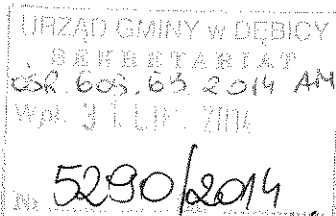 URZĄD GMINY w DĘBICY
SEKRETARIAT
OŚR.605.63.2014 AM
Wpł. 31. LIP. 2014
Nr 5290/2014